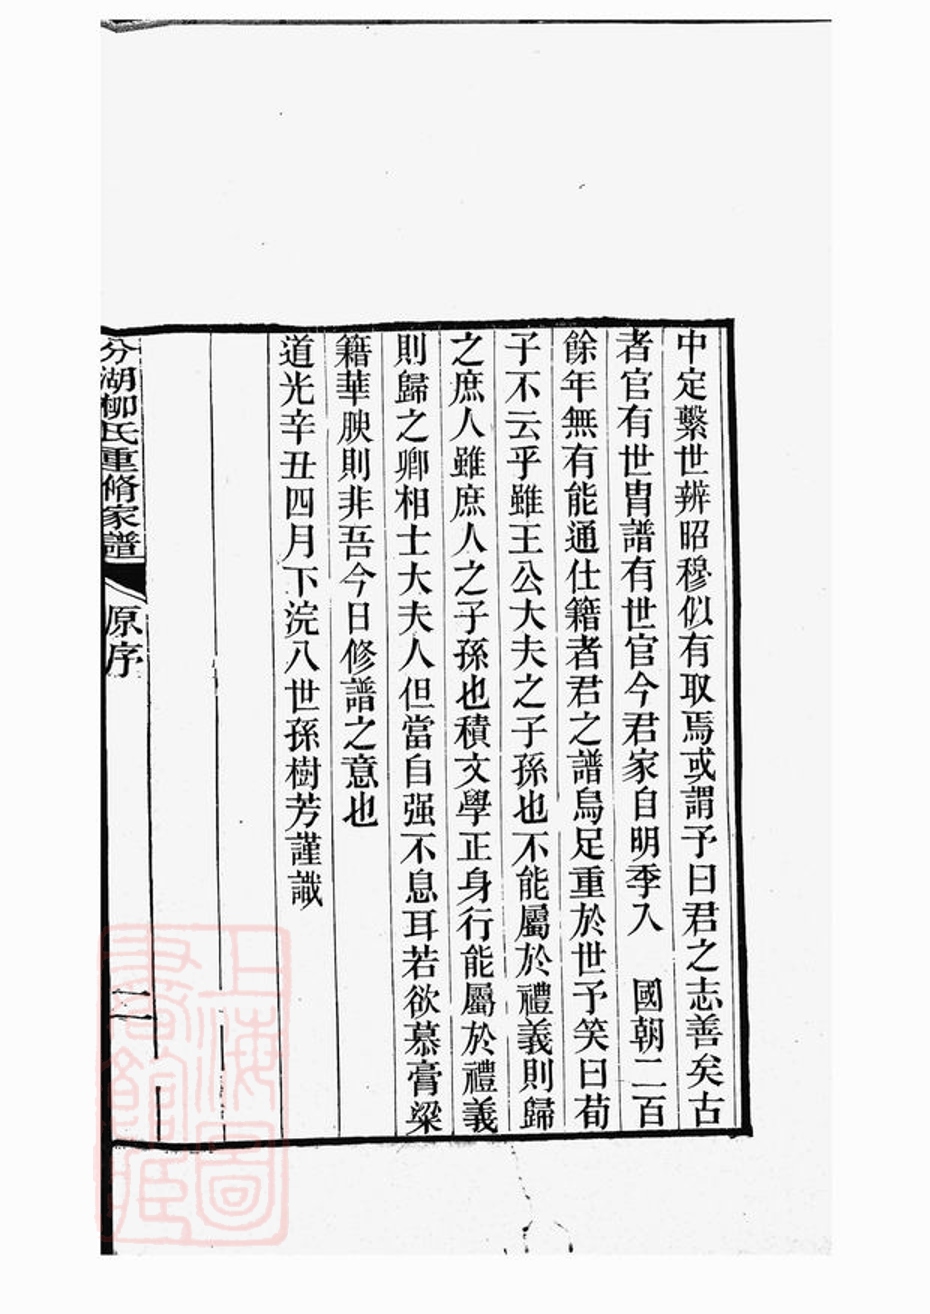 中定繫世辨昭穆似有取焉或謂予曰君之志善矣古
者官有世胄譜有世官今君家自明季入　國朝二百
餘年無有能通仕籍者君之譜烏足重於世予笑曰荀
子不云乎雖王公大夫之子孫也不能屬於禮義則歸
之庶人雖庶人之子孫也積文學正身行能屬於禮義
則歸之卿相士大夫人但當自强不息耳若欲慕膏粱
籍華腴則非吾今日修譜之意也
道光辛丑四月下浣八世孫樹芳謹識
分湖柳氏重脩家譜
原序
二
上海圖書館藏